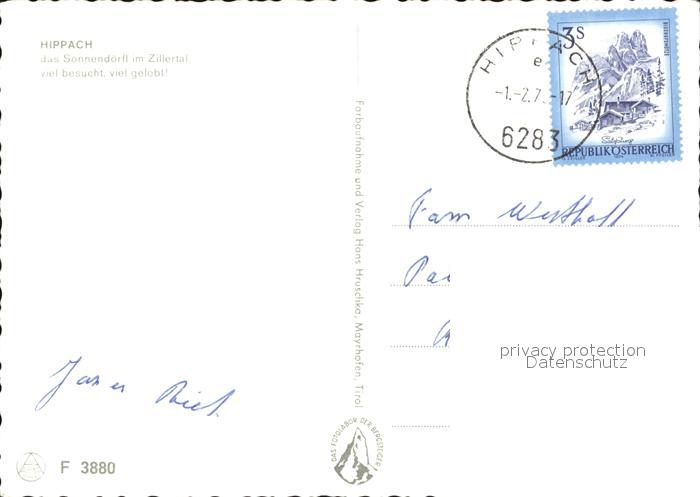 HIPPACH
das Sonnendörfl im Zillertal
viel besucht, viel gelobt!
Farbaufnahme und Verlag Hans Hruschka, Mayrhofen, Tirol
HIPPACH
e
-1.-2.7 -17
6283
3 S
REPUBLIK ÖSTERREICH
Fam Westhoff
privacy protection
Datenschutz
DAS FOTOLABOR DER BERGSTEIGER
F 3880